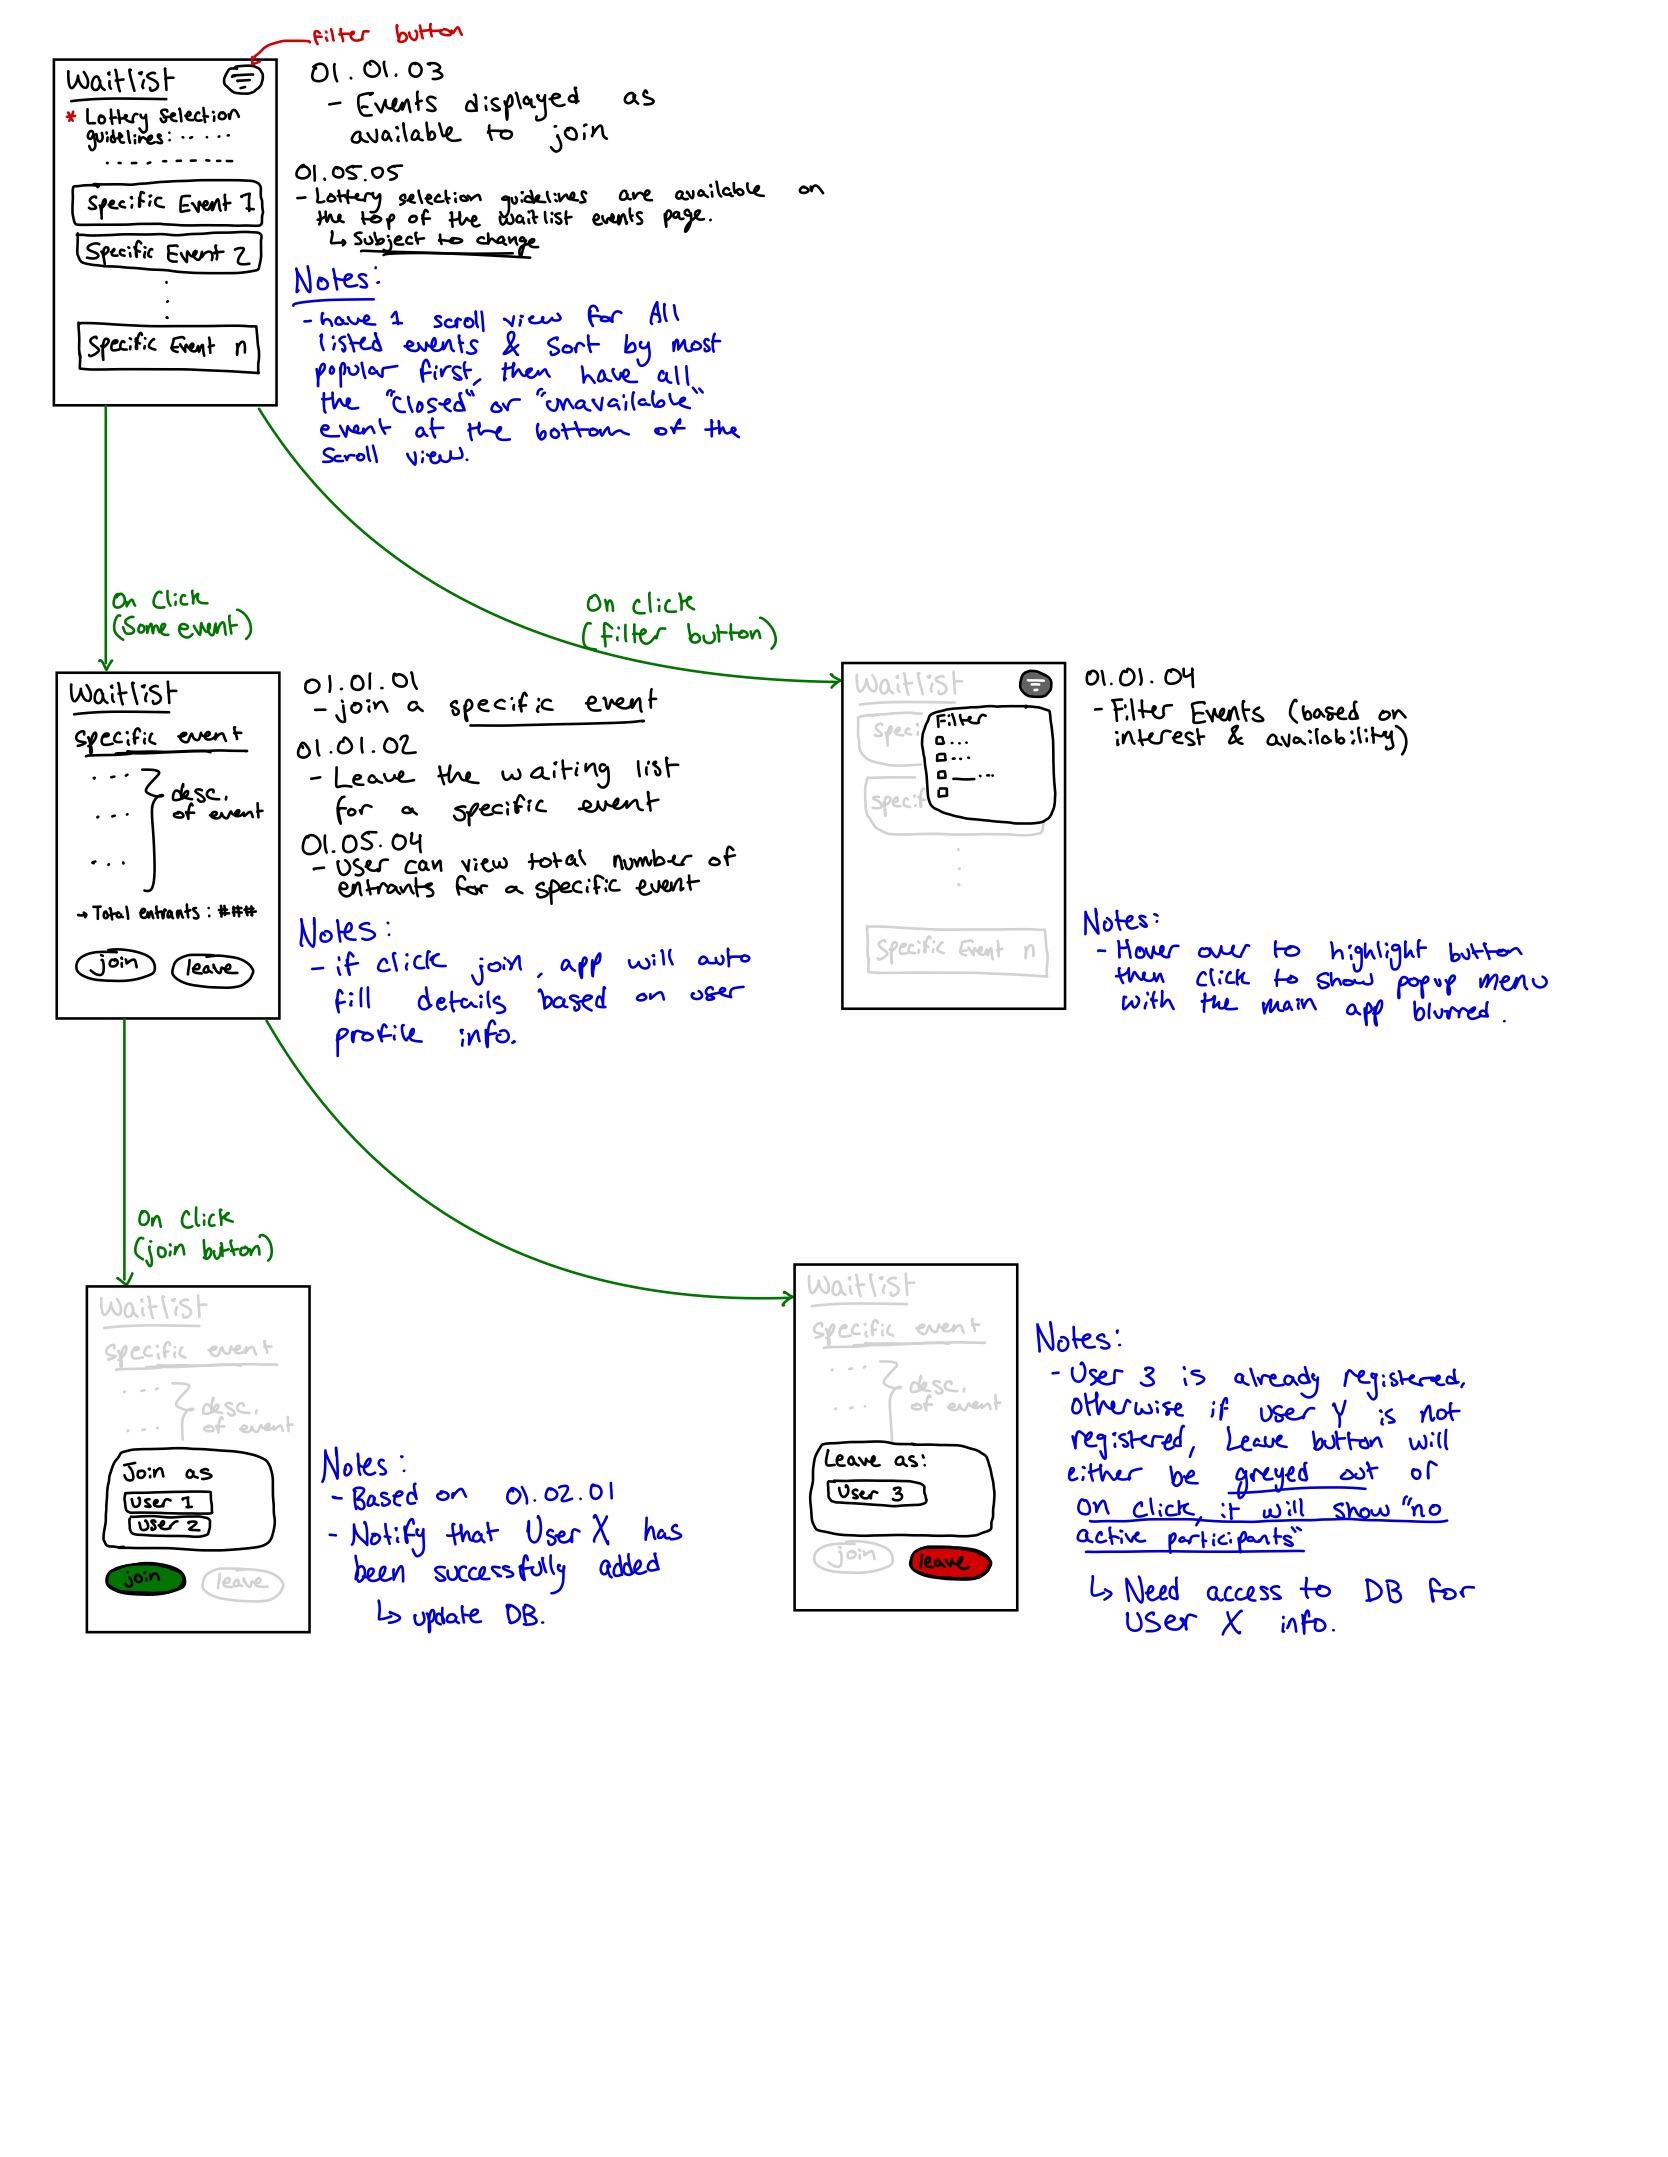 filter button
Waitlist
* Lottery Selection
guidelines: .. . ...
.... ------
Specific Event 1
Specific Event 2
Specific Event n
01.01.03
- Events displayed as
available to join
01.05.05
- Lottery selection guidelines are available on
the top of the waitlist events page.
↳ Subject to change
Notes:
- have 1 scroll view for All
listed events & sort by most
popular first, then have all
the "closed" or "unavailable"
event at the bottom of the
scroll view.
On Click
(some event)
On click
(filter button)
Waitlist
specific event
... desc.
... of event
...
→ Total entrants : ###
join leave
01.01.01
- join a specific event
01.01.02
- Leave the waiting list
for a specific event
01.05.04
- User can view total number of
entrants for a specific event
Notes:
- if click join, app will auto
fill details based on user
profile info.
Waitlist
Speci
specif
Specific Event n
Filter
...
...
__...
01.01.04
- Filter Events (based on
interest & availability)
Notes:
- Hover over to highlight button
then click to show popup menu
with the main app blurred.
On Click
(join button)
Waitlist
specific event
... desc.
... of event
Join as
User 1
User 2
join leave
Notes:
- Based on 01.02.01
- Notify that User X has
been successfully added
↳ update DB.
Waitlist
specific event
... desc.
... of event
Leave as:
User 3
join leave
Notes:
- User 3 is already registerred,
otherwise if user Y is not
registered, Leave button will
either be greyed out or
on click, it will show "no
active participants"
↳ Need access to DB for
User X info.